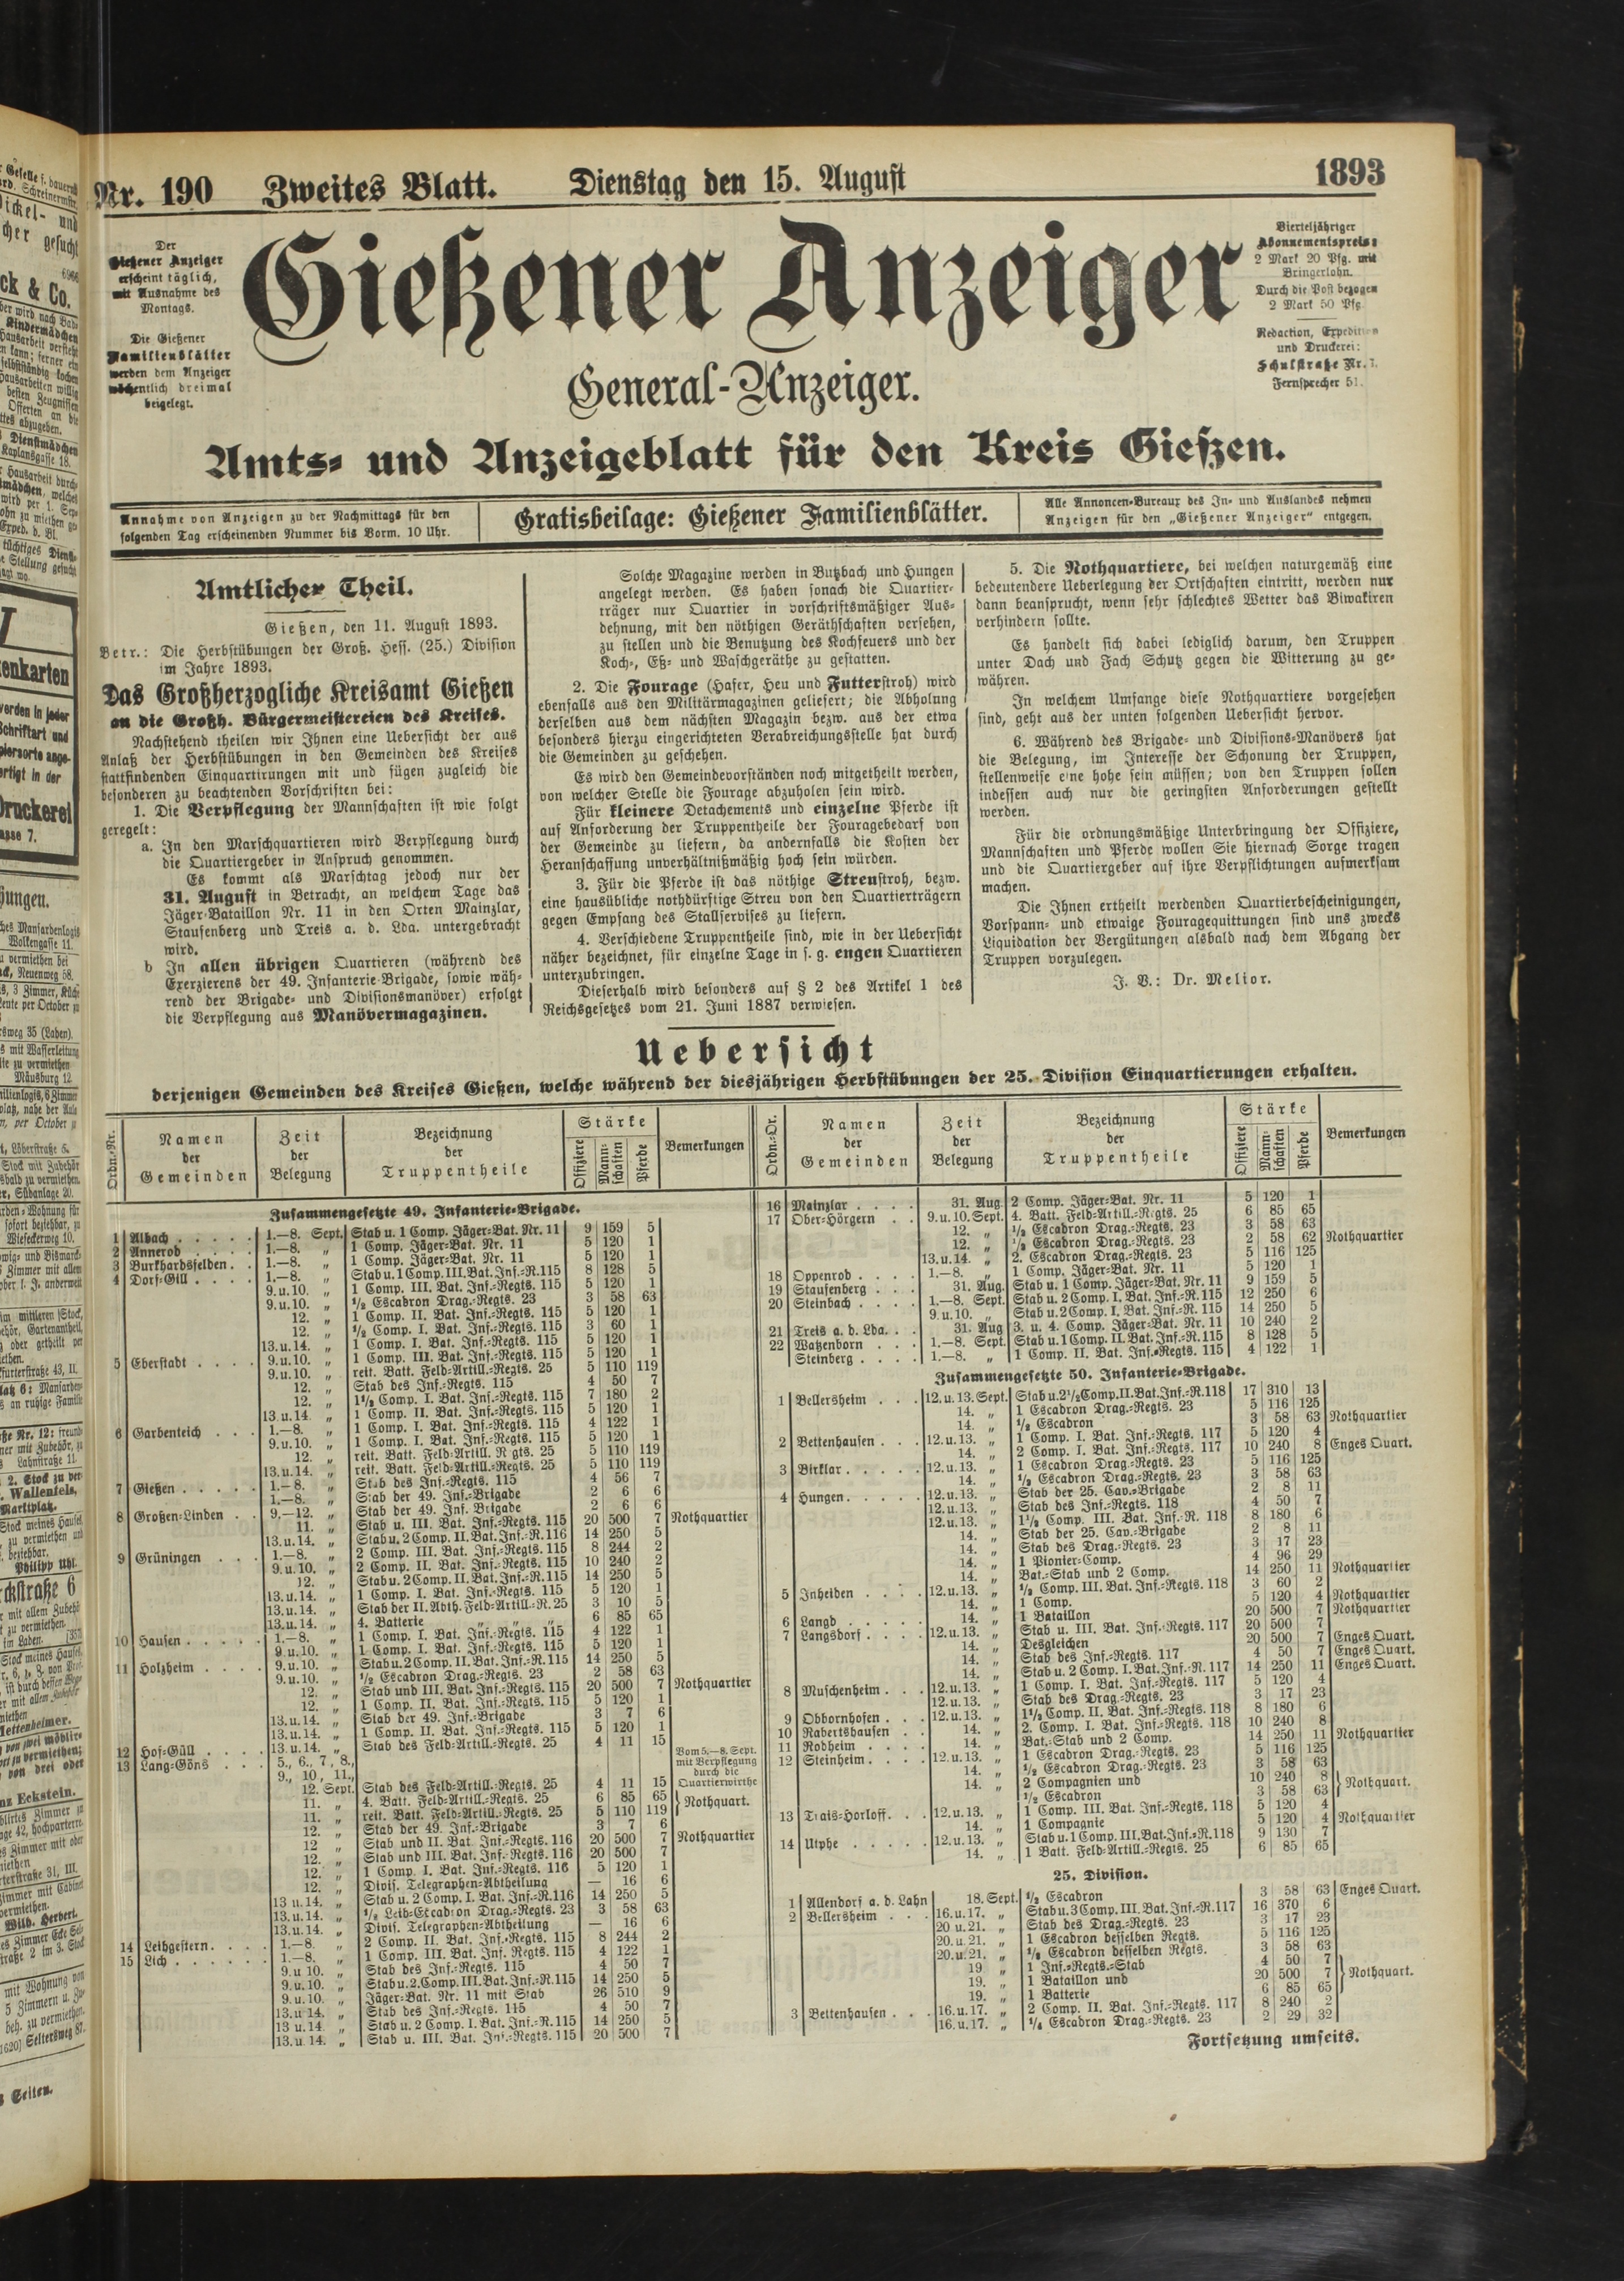 Nr. 190 Zweites Blatt. Dienstag den 15. August 1893
Der
Gießener Anzeiger
erscheint täglich,
mit Ausnahme des
Montags.
Die Gießener
Familienblätter
werden dem Anzeiger
wöchentlich dreimal
beigelegt.
Gießener Anzeiger
General-Anzeiger.
Vierteljähriger
Abonnementspreis:
2 Mark 20 Pfg. mit
Bringerlohn.
Durch die Post bezogen
2 Mark 50 Pfg.
Redaction, Expedition
und Druckerei:
Schulstraße Nr. 7.
Fernsprecher 51.
Amts- und Anzeigeblatt für den Kreis Gießen.
Annahme von Anzeigen zu der Nachmittags für den
folgenden Tag erscheinenden Nummer bis Vorm. 10 Uhr.
Gratisbeilage: Gießener Familienblätter.
Alle Annoncen-Bureaux des In- und Auslandes nehmen
Anzeigen für den „Gießener Anzeiger“ entgegen.
Amtlicher Theil.
Gießen, den 11. August 1893.
Betr.: Die Herbstübungen der Groß. Hess. (25.) Division
im Jahre 1893.
Das Großherzogliche Kreisamt Gießen
an die Großh. Bürgermeistereien des Kreises.
Nachstehend theilen wir Ihnen eine Uebersicht der aus
Anlaß der Herbstübungen in den Gemeinden des Kreises
stattfindenden Einquartirungen mit und fügen zugleich die
besonderen zu beachtenden Vorschriften bei:
1. Die Verpflegung der Mannschaften ist wie folgt
geregelt:
a. In den Marschquartieren wird Verpflegung durch
die Quartiergeber in Anspruch genommen.
Es kommt als Marschtag jedoch nur der
31. August in Betracht, an welchem Tage das
Jäger-Bataillon Nr. 11 in den Orten Mainzlar,
Staufenberg und Treis a. d. Lda. untergebracht
wird.
b In allen übrigen Quartieren (während des
Exerzierens der 49. Infanterie-Brigade, sowie wäh-
rend der Brigade- und Divisionsmanöver) erfolgt
die Verpflegung aus Manövermagazinen.
Solche Magazine werden in Butzbach und Hungen
angelegt werden. Es haben sonach die Quartier-
träger nur Quartier in vorschriftsmäßiger Aus-
dehnung, mit den nöthigen Geräthschaften versehen,
zu stellen und die Benutzung des Kochfeuers und der
Koch-, Eß- und Waschgeräthe zu gestatten.
2. Die Fourage (Hafer, Heu und Futterstroh) wird
ebenfalls aus den Militärmagazinen geliefert; die Abholung
derselben aus dem nächsten Magazin bezw. aus der etwa
besonders hierzu eingerichteten Verabreichungsstelle hat durch
die Gemeinden zu geschehen.
Es wird den Gemeindevorständen noch mitgetheilt werden,
von welcher Stelle die Fourage abzuholen sein wird.
Für kleinere Detachements und einzelne Pferde ist
auf Anforderung der Truppentheile der Fouragebedarf von
der Gemeinde zu liefern, da andernfalls die Kosten der
Heranschaffung unverhältnißmäßig hoch sein würden.
3. Für die Pferde ist das nöthige Streustroh, bezw.
eine hausübliche nothdürftige Streu von den Quartierträgern
gegen Empfang des Stallservises zu liefern.
4. Verschiedene Truppentheile sind, wie in der Uebersicht
näher bezeichnet, für einzelne Tage in s. g. engen Quartieren
unterzubringen.
Dieserhalb wird besonders auf § 2 des Artikel 1 des
Reichsgesetzes vom 21. Juni 1887 verwiesen.
5. Die Nothquartiere, bei welchen naturgemäß eine
bedeutendere Ueberlegung der Ortschaften eintritt, werden nur
dann beansprucht, wenn sehr schlechtes Wetter das Biwakiren
verhindern sollte.
Es handelt sich dabei lediglich darum, den Truppen
unter Dach und Fach Schutz gegen die Witterung zu ge-
währen.
In welchem Umfange diese Nothquartiere vorgesehen
sind, geht aus der unten folgenden Uebersicht hervor.
6. Während des Brigade- und Divisions-Manövers hat
die Belegung, im Interesse der Schonung der Truppen,
stellenweise eine hohe sein müssen; von den Truppen sollen
indessen auch nur die geringsten Anforderungen gestellt
werden.
Für die ordnungsmäßige Unterbringung der Offiziere,
Mannschaften und Pferde wollen Sie hiernach Sorge tragen
und die Quartiergeber auf ihre Verpflichtungen aufmerksam
machen.
Die Ihnen ertheilt werdenden Quartierbescheinigungen,
Vorspann- und etwaige Fouragequittungen sind uns zwecks
Liquidation der Vergütungen alsbald nach dem Abgang der
Truppen vorzulegen.
J. V.: Dr. Melior.
Uebersicht
derjenigen Gemeinden des Kreises Gießen, welche während der diesjährigen Herbstübungen der 25. Division Einquartierungen erhalten.
Ordn.-Nr. Namen der Gemeinden Zeit der Belegung Bezeichnung der Truppentheile Stärke Offiziere Mannschaften Pferde Bemerkungen
Zusammengesetzte 49. Infanterie-Brigade.
1 Albach 1.—8. Sept. Stab u. 1 Comp. Jäger-Bat. Nr. 11 9 159 5
2 Annerod 1.—8. „ 1 Comp. Jäger-Bat. Nr. 11 5 120 1
3 Burkhardsfelden 1.—8. „ 1 Comp. Jäger-Bat. Nr. 11 5 120 1
4 Dorf-Gill 1.—8. „ Stab u. 1 Comp. III. Bat. Inf.-R. 115 8 128 5
9.u.10. „ 1 Comp. III. Bat. Inf.-Regts. 115 5 120 1
9.u.10. „ 1/2 Escadron Drag.-Regts. 23 3 58 63
12. „ 1 Comp. II. Bat. Inf.-Regts. 115 5 120 1
12. „ 1/2 Comp. I. Bat. Inf.-Regts. 115 3 60 1
13.u.14. „ 1 Comp. I. Bat. Inf.-Regts. 115 5 120 1
5 Eberstadt 9.u.10. „ 1 Comp. III. Bat. Inf.-Regts. 115 5 120 1
9.u.10. „ reit. Batt. Feld-Artill.-Regts. 25 5 110 119
12. „ Stab des Inf.-Regts. 115 4 50 7
12. „ 1 1/2 Comp. I. Bat. Inf.-Regts. 115 7 180 2
13.u.14. „ 1 Comp. II. Bat. Inf.-Regts. 115 5 120 1
6 Garbenteich 1.—8. „ 1 Comp. I. Bat. Inf.-Regts. 115 4 122 1
9.u.10. „ 1 Comp. I. Bat. Inf.-Regts. 115 5 120 1
12. „ reit. Batt. Feld-Artill. Regts. 25 5 110 119
13.u.14. „ reit. Batt. Feld-Artill.-Regts. 25 5 110 119
7 Gießen 1.—8. „ Stab des Inf.-Regts. 115 4 56 7
1.—8. „ Stab der 49. Inf.-Brigade 2 6 6
8 Großen-Linden 9.—12. „ Stab der 49. Inf. Brigade 2 6 6
11. „ Stab u. III. Bat. Inf.-Regts. 115 20 500 7 Nothquartier
13.u.14. „ Stab u. 2 Comp. II. Bat. Inf.-R. 116 14 250 5
9 Grüningen 1.—8. „ 2 Comp. III. Bat. Inf.-Regts. 115 8 244 2
9.u.10. „ 2 Comp. II. Bat. Inf.-Regts. 115 10 240 2
12. „ Stab u. 2 Comp. II. Bat. Inf.-R. 115 14 250 5
13.u.14. „ 1 Comp. I. Bat. Inf.-Regts. 115 5 120 1
13.u.14. „ Stab der II. Abth. Feld-Artill.-R. 25 3 10 5
13.u.14. „ 4. Batterie „ „ „ 6 85 65
10 Hausen 1.—8. „ 1 Comp. I. Bat. Inf.-Regts. 115 4 122 1
9.u.10. „ 1 Comp. I. Bat. Inf.-Regts. 115 5 120 1
11 Holzheim 9.u.10. „ Stab u. 2 Comp. II. Bat. Inf.-R. 115 14 250 5
9.u.10. „ 1/2 Escadron Drag.-Regts. 23 2 58 63
12. „ Stab und III. Bat. Inf.-Regts. 115 20 500 7 Nothquartier
12. „ 1 Comp. II. Bat. Inf.-Regts. 115 5 120 1
13.u.14. „ Stab der 49. Inf.-Brigade 3 7 6
13.u.14. „ 1 Comp. II. Bat. Inf.-Regts. 115 5 120 1
12 Hof-Güll 13.u.14. „ Stab des Feld-Artill.-Regts. 25 4 11 15
13 Lang-Göns 5., 6., 7., 8., 9., 10., 11., 12. Sept. Stab des Feld-Artill.-Regts. 25 4 11 15 Vom 5.—8. Sept. mit Verpflegung durch die Quartierwirthe
11. „ 4. Batt. Feld-Artill.-Regts. 25 6 85 65 } Nothquart.
11. „ reit. Batt. Feld-Artill.-Regts. 25 5 110 119
12. „ Stab der 49. Inf.-Brigade 3 7 6
12 „ Stab und II. Bat. Inf.-Regts. 116 20 500 7 Nothquartier
12. „ Stab und III. Bat. Inf.-Regts. 116 20 500 7
12. „ 1 Comp. I. Bat. Inf.-Regts. 116 5 120 1
12. „ Divis. Telegraphen-Abtheilung — 16 6
13 u.14. „ Stab u. 2 Comp. I. Bat. Inf.-R. 116 14 250 5
13.u.14. „ 1/2 Leib-Escadron Drag.-Regts. 23 3 58 63
13.u.14. „ Divis. Telegraphen-Abtheilung — 16 6
14 Leihgestern 1.—8. „ 2 Comp. II. Bat. Inf.-Regts. 115 8 244 2
15 Lich 1.—8. „ 1 Comp. III. Bat. Inf.-Regts. 115 4 122 1
9.u 10. „ Stab des Inf.-Regts. 115 4 50 7
9.u.10. „ Stab u. 2. Comp. III. Bat. Inf.-R. 115 14 250 5
9.u.10. „ Jäger-Bat. Nr. 11 mit Stab 26 510 9
13.u.14. „ Stab des Inf.-Regts. 115 4 50 7
13 u.14. „ Stab u. 2 Comp. I. Bat. Inf.-R. 115 14 250 5
13.u.14. „ Stab u. III. Bat. Inf.-Regts. 115 20 500 7
Namen der Gemeinden Zeit der Belegung Bezeichnung der Truppentheile Stärke Offiziere Mannschaften Pferde Bemerkungen
16 Mainzlar 31. Aug. 2 Comp. Jäger-Bat. Nr. 11 5 120 1
17 Ober-Hörgern 9.u.10. Sept. 4. Batt. Feld-Artill.-Regts. 25 6 85 65
12. „ 1/2 Escadron Drag.-Regts. 23 3 58 63
12. „ 1/2 Escadron Drag.-Regts. 23 2 58 62 Nothquartier
13.u.14. „ 2. Escadron Drag.-Regts. 23 5 116 125
18 Oppenrod 1.—8. „ 1 Comp. Jäger-Bat. Nr. 11 5 120 1
19 Staufenberg 31. Aug. Stab u. 1 Comp. Jäger-Bat. Nr. 11 9 159 5
20 Steinbach 1.—8. Sept. Stab u. 2 Comp. I. Bat. Inf.-R. 115 12 250 6
9.u.10. „ Stab u. 2 Comp. I. Bat. Inf.-R. 115 14 250 5
21 Treis a. d. Lda. 31. Aug 3. u. 4. Comp. Jäger-Bat. Nr. 11 10 240 2
22 Watzenborn 1.—8. Sept. Stab u. 1 Comp. II. Bat. Inf.-R. 115 8 128 5
Steinberg 1.—8. „ 1 Comp. II. Bat. Inf.-Regts. 115 4 122 1
Zusammengesetzte 50. Infanterie-Brigade.
1 Bellersheim 12.u.13. Sept. Stab u. 2 1/2 Comp. II. Bat. Inf.-R. 118 17 310 13
14. „ 1 Escadron Drag.-Regts. 23 5 116 125
14. „ 1/2 Escadron 3 58 63 Nothquartier
2 Bettenhausen 12.u.13. „ 1 Comp. I. Bat. Inf.-Regts. 117 5 120 4
14. „ 2 Comp. I. Bat. Inf.-Regts. 117 10 240 8 Enges Quart.
3 Birklar 12.u.13. „ 1 Escadron Drag.-Regts. 23 5 116 125
14. „ 1/2 Escadron Drag.-Regts. 23 3 58 63
4 Hungen 12.u.13. „ Stab der 25. Cav.-Brigade 2 8 11
12.u.13. „ Stab des Inf.-Regts. 118 4 50 7
12.u.13. „ 1 1/2 Comp. III. Bat. Inf.-R. 118 8 180 6
14. „ Stab der 25. Cav.-Brigade 2 8 11
14. „ Stab des Drag.-Regts. 23 3 17 23
14. „ 1 Pionier-Comp. 4 96 29
14. „ Bat.-Stab und 2 Comp. 14 250 11 Nothquartier
5 Inheiden 12.u.13. „ 1/2 Comp. III. Bat. Inf.-Regts. 118 3 60 2
14. „ 1 Comp. 5 120 4 Nothquartier
6 Langd 14. „ 1 Bataillon 20 500 7 Nothquartier
7 Langsdorf 12.u.13. „ Stab u. III. Bat. Inf.-Regts. 117 20 500 7
14. „ Desgleichen 20 500 7 Enges Quart.
14. „ Stab des Inf.-Regts. 117 4 50 7 Enges Quart.
14. „ Stab u. 2 Comp. I. Bat. Inf.-R. 117 14 250 11 Enges Quart.
8 Muschenheim 12.u.13. „ 1 Comp. I. Bat. Inf.-Regts. 117 5 120 4
12.u.13. „ Stab des Drag.-Regts. 23 3 17 23
9 Obbornhofen 12.u.13. „ 1 1/2 Comp. II. Bat. Inf.-Regts. 118 8 180 6
10 Rabertshausen 14. „ 2. Comp. I. Bat. Inf.-Regts. 118 10 240 8
11 Rodheim 14. „ Bat.-Stab und 2 Comp. 14 250 11 Nothquartier
12 Steinheim 12.u.13. „ 1 Escadron Drag.-Regts. 23 5 116 125
14. „ 1/2 Escadron Drag.-Regts. 23 3 58 63
14. „ 2 Compagnien und 10 240 8 } Nothquart.
1/2 Escadron 3 58 63
13 Trais-Horloff 12.u.13. „ 1 Comp. III. Bat. Inf.-Regts. 118 5 120 4
14. „ 1 Compagnie 5 120 4 Nothquartier
14 Utphe 12.u.13. „ Stab u. 1 Comp. III. Bat. Inf.-R. 118 9 130 7
14. „ 1 Batt. Feld-Artill.-Regts. 25 6 85 65
25. Division.
1 Allendorf a. d. Lahn 18. Sept. 1/2 Escadron 3 58 63 Enges Quart.
2 Bellersheim 16.u.17. „ Stab u. 3 Comp. III. Bat. Inf.-R. 117 16 370 6
20 u.21. „ Stab des Drag.-Regts. 23 3 17 23
20.u.21. „ 1 Escadron desselben Regts. 5 116 125
20.u.21. „ 1/2 Escadron desselben Regts. 3 58 63
19. „ 1 Inf.-Regts.-Stab 4 50 7
19. „ 1 Bataillon und 20 500 7 } Nothquart.
19. „ 1 Batterie 6 85 65
3 Bettenhausen 16.u.17. „ 2 Comp. II. Bat. Inf.-Regts. 117 8 240 2
16.u.17. „ 1/4 Escadron Drag.-Regts. 23 2 29 32
Fortsetzung umseits.